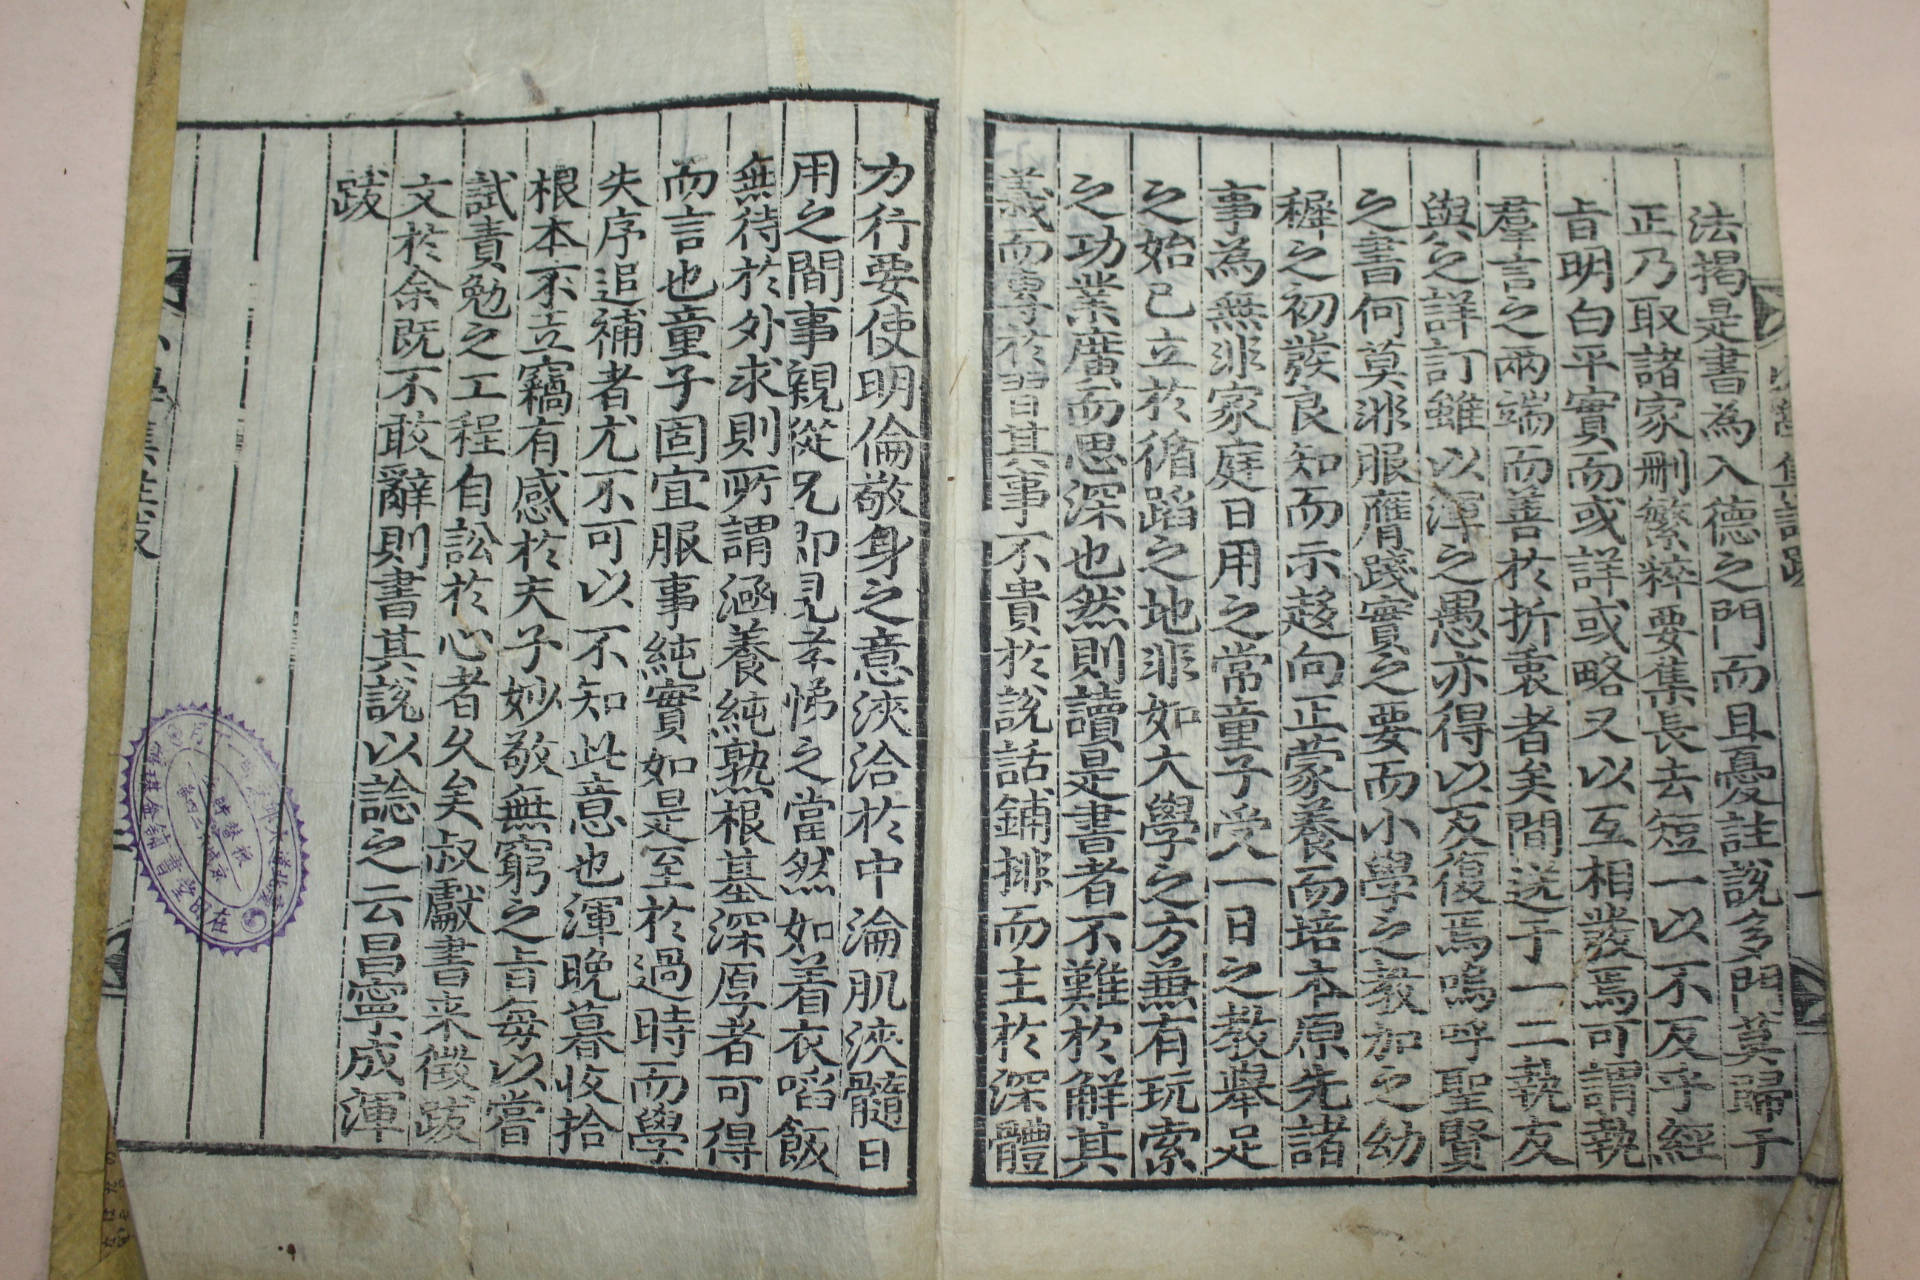 法揭是書為入德之門而且憂註說多門莫歸于
正乃取諸家刪繁粹要集長去短一以不反乎經
旨明白平實而或詳或略又以互相發焉可謂執
羣言之兩端而善於折衷者矣間送于一二執友
與之詳訂雖以渾之愚亦得以反復焉嗚呼聖賢
之書何莫非服膺踐實之要而小學之教加之幼
穉之初發良知而示趍向正蒙養而培本原先諸
事為無非家庭日用之常童子受八一日之教舉足
之始已立於循蹈之地非如大學之方兼有玩索
之功業廣而思深也然則讀是書者不難於解其
義而專於習其事不貴於說話鋪排而主於深體
力行要使明倫敬身之意浹洽於中淪肌浹髓日
用之間事親從兄即見孝悌之當然如着衣㗖飯
無待於外求則所謂涵養純熟根基深厚者可得
而言也童子固宜服事純實如是至於過時而學
失序追補者尤不可以不知此意也渾晚暮收拾
根本不立竊有感於夫子妙敬無窮之旨每以嘗
試責勉之工程自訟於心者久矣叔獻書來徵跋
文於余既不敢辭則書其說以諗之云昌寧成渾
跋